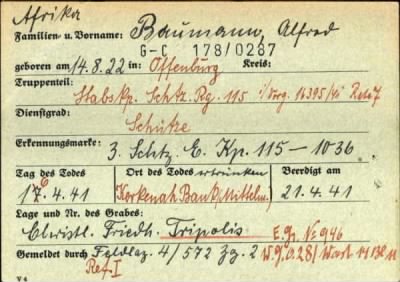 Afrika
Familien- u. Vorname: Baumann, Alfred
G-C 178/0287
geboren am 14.8.22 in Offenburg Kreis:
Truppenteil: Stabskp. Schtz. Rg. 115
Dienstgrad: Schütze
Erkennungsmarke: 3. Schtz. E. Kp. 115-1036
Tag des Todes Ort des Todes ertrunken Beerdigt am
17.4.41 Korkenah Bank, Mittelm. 21.4.41
6
Lage und Nr. des Grabes:
Christl. Friedh. Tripolis E.G. No 946
Gemeldet durch Feldlaz. 4/572 Zg. 2
Ref. I